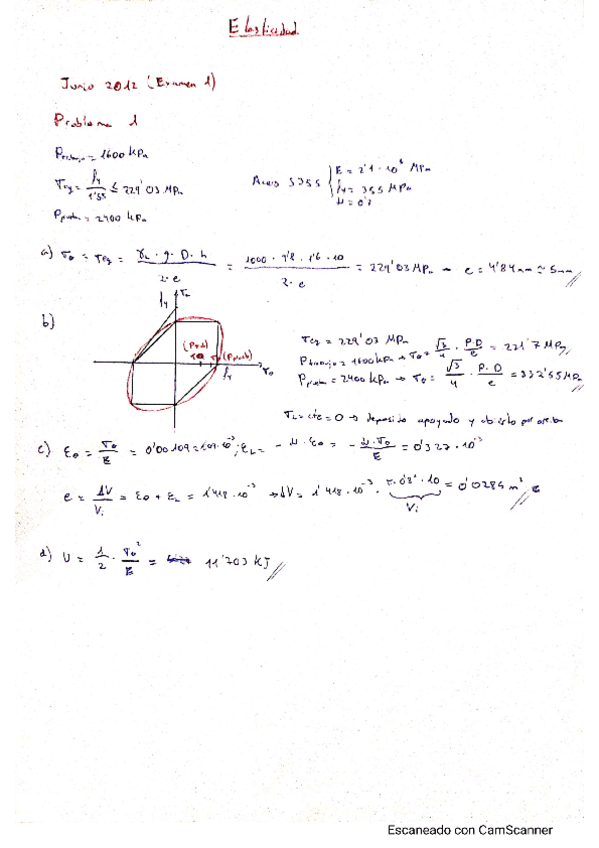 Elasticidad
Junio 2012 (Examen 1)
Problema 1
P trabajo = 1600 kPa
σeq = fy / 1'55 ≤ 229'03 MPa
P prueba = 2400 kPa
Acero S355 { E = 2'1 · 10⁶ MPa
fy = 355 MPa
μ = 0'3
a) σθ = σeq = γL · g · D · h / 2 · e = 1000 · 9'8 · 1'6 · 10 / 2 · e = 229'03 MPa → e = 4'84 mm ≃ 5mm //
b)
fy σL
(Ptrab) (Pprueb)
fy σθ
σeq = 229'03 MPa
P trabajo = 1600 kPa → σθ = √3/4 · P·D/e = 221'7 MPa //
P prueba = 2400 kPa → σθ = √3/4 · P·D/e = 332'55 MPa //
σL = cte = 0 → deposito apoyado y abierto por arriba
c) εθ = σθ/E = 0'00109 = 1'09·10⁻³ ; εL = - μ · εθ = - μ·σθ/E = 0'327 · 10⁻³
e = ΔV/Vi = εθ + εL = 1'418·10⁻³ → ΔV = 1'418·10⁻³ · π·0'8² · 10 = 0'0284 m³ //
Vi
d) U = 1/2 · σθ²/E = 11'703 kJ //
Escaneado con CamScanner